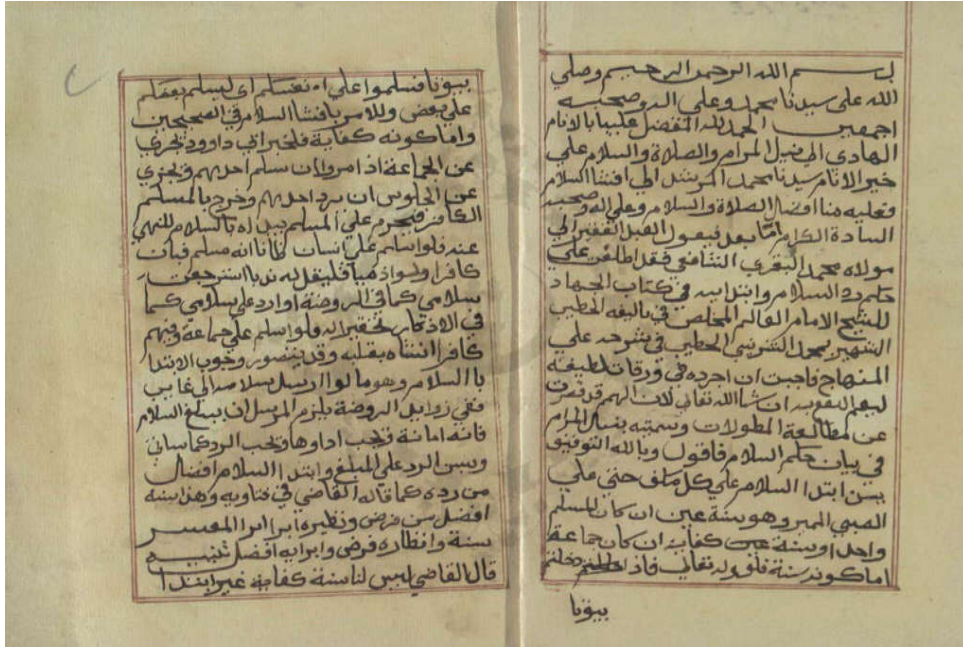 بسم الله الرحمن الرحيم وصلي
الله علي سيدنا محمد وعلي اله وصحبه
اجمعين الحمد لله المتفضل علينا بالانام
الهادي الي نيل المرام والصلاة والسلام علي
خير الانام سيدنا محمد المرشد الي افشا السلام
فعليه منا افضل الصلاة والسلام وعلي اله وصحبه
السادة الكرام اما بعد فيقول العبد الفقير الي
مولاه محمد البقري الشافعي قد اطلعت علي
حكم رد السلام وابتدايه في كتاب الجهاد
للشيخ الامام العالم المخلص في تاليفه الخطيب
الشهير بمحمد الشربيني الخطيب في شرحه علي
المنهاج فاحببت ان اجرده في ورقات لطيفة
ليعم النفع به ان شا الله تعالي لان الهمم قد قصرت
عن مطالعة المطولات وسميته بنيل المرام
في بيان حكم السلام فاقول وبالله التوفيق
يسن ابتدا السلام علي كل مسلم حتي علي
الصبي المميز وهو سنة عين ان كان المسلم
واحدا وسنة كفاية ان كان جماعة
اما كونه سنة فلقوله تعالي فاذا دخلتم
بيوتا
بيوتا فسلموا علي انفسكم اي ليسلم بعضكم
علي بعض وللامر بافشا السلام في الصحيحين
واما كونه كفاية فلخبر ابي داوود يجزي
عن الجماعة اذا مروا ان يسلم احدهم ويجزي
عن الجلوس ان يرد احدهم وخرج بالمسلم
الكافر فيحرم علي المسلم بداه بالسلام للنهي
عنه فلو سلم علي انسان ظانا انه مسلم فبان
كافرا ولو ذميا فليقل له ندبا استرجعت
سلامي كما في الروضة او رد علي سلامي كما
في الاذكار تحقيرا له ولو سلم علي جماعة وفيهم
كافر استثناه بقلبه وقد يتصور وجوب الابتدا
بالسلام وهو ما لو ارسل سلامه الي غايب
ففي زوايد الروضة يلزم المرسل ان يبلغ السلام
فانه امانة ويجب اداوها ويجب الرد كما سياتي
ويسن الرد علي المبلغ وابتدا السلام افضل
من رده كما قاله القاضي في فتاويه وهذا سنة
افضل من فرض ونظيره ابرا المعسر
سنة وانظاره فرض وابرايه افضل تنبيه
قال القاضي ليس لنا سنة كفاية غير ابتدا